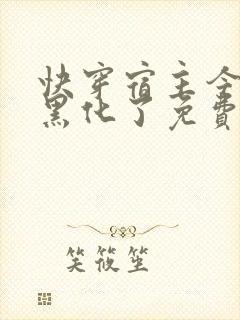 快穿宿主全
黑化了免費
笑筱笙